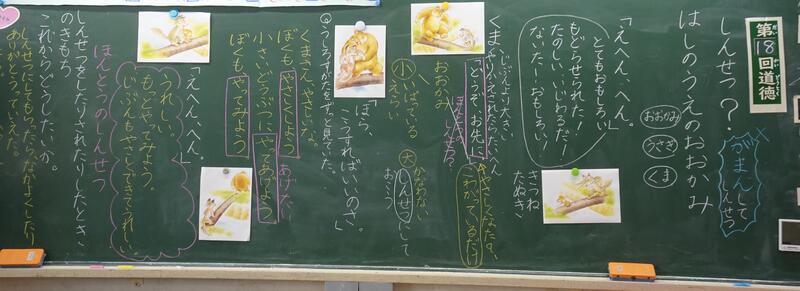 第18回道徳
しんせつ？
がまんして
しんせつ
はしのうえのおおかみ
おおかみ
うさぎ
くま
「えへん、へん。」
とてもおもしろい
もどらせられた！
たのしい…いじわるだ…
ないた…おもしろい！
きつね
たぬき
じぶんより大きい
くま やりかえされたらたいへん
「どうぞ、お先」
ほんとうにしんせつ？
こわがっているだけ
おおかみ
小 いばっている
えらい
大 かなわない
しんせつにして
おこう
「ほら、
こうすればいいのさ。」
Qうしろすがたをずっと見ていた。
くまさん、やさしいな。
ぼくもやさしくしよう
小さいどうぶつにやってあげよう
あげたい
ぼくもやってみよう
「えへん、へん。」
うれしい。
もっとやってみよう。
じぶんもやさしくできてうれしい。
ほんとうのしんせつ
しんせつをしたりされたりしたときの
きもち
これからどうしたいか。
しんせつにしてもらったら、なかよくしたり
ありがとうっていえた。